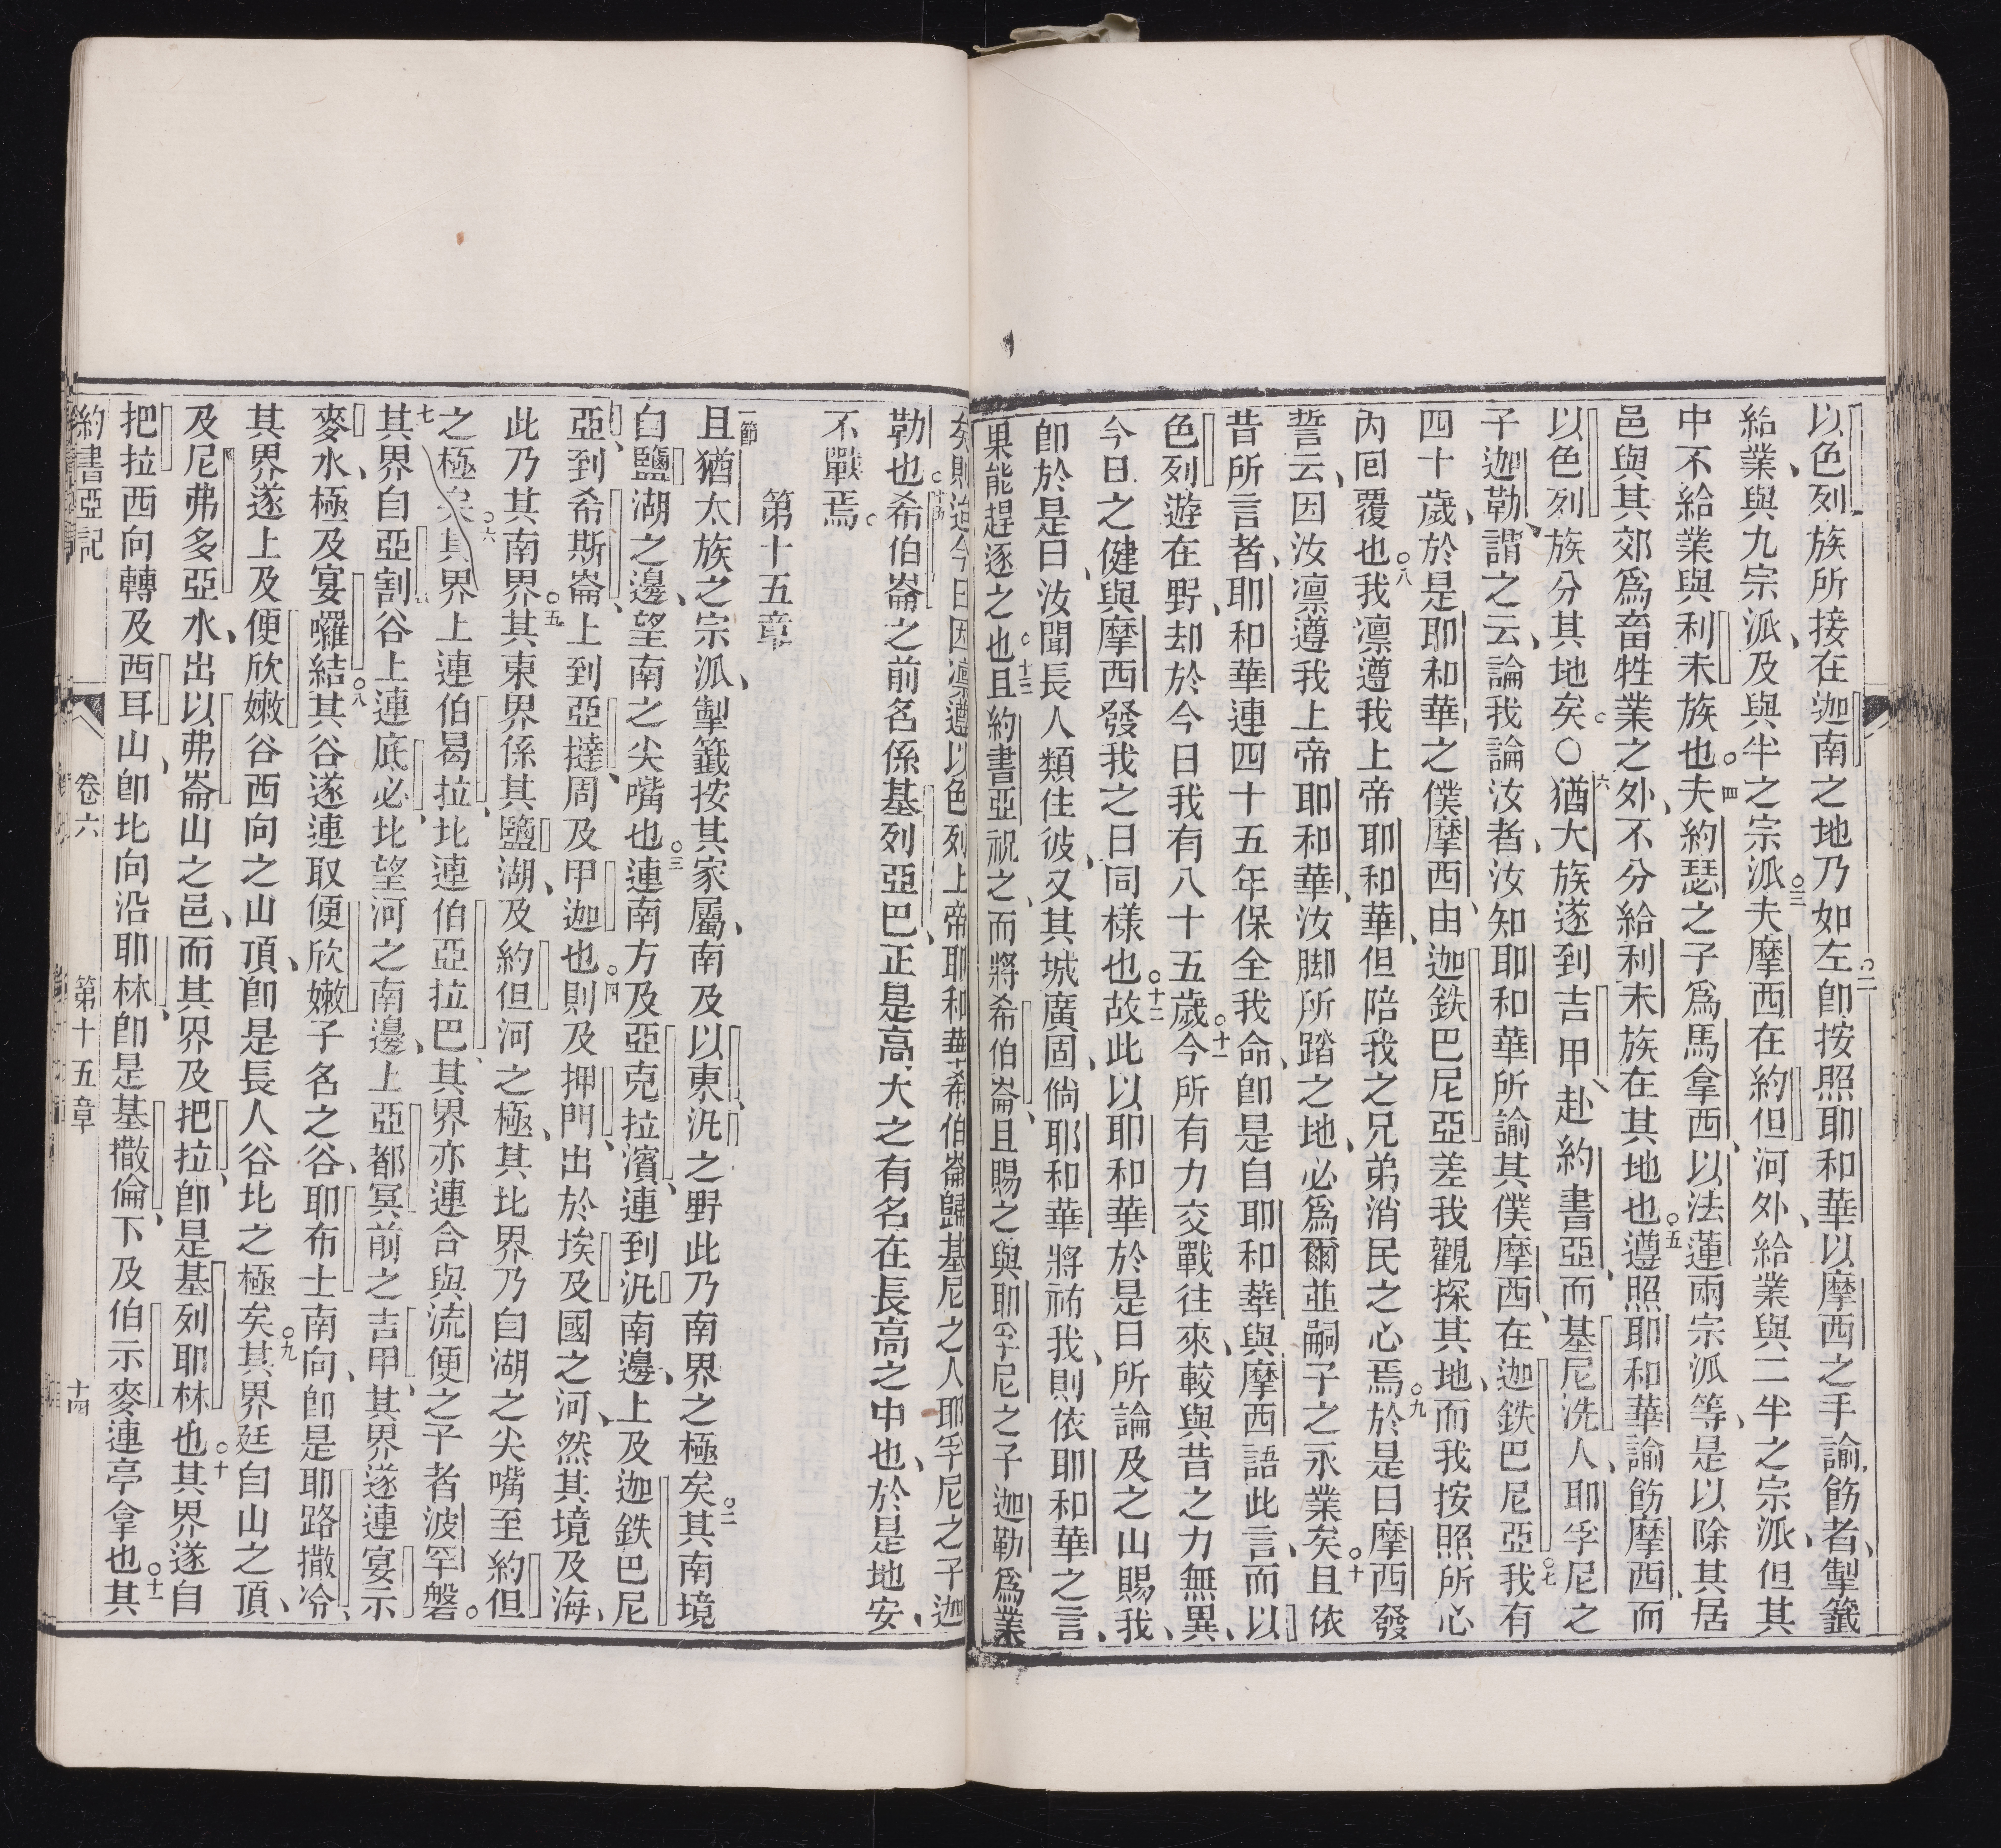 以色列族所接在迦南之地乃如左○二卽按照耶和華以摩西之手諭飭者、掣籤
給業、與九宗派、及與半之宗派○三夫摩西在約但河外、給業與二半之宗派、但其
中不給業與利未族也○四夫約瑟之子爲馬拿西、以法蓮兩宗派等、是以除其居
邑與其郊爲畜牲業之外、不分給利未族在其地也○五遵照耶和華諭飭摩西、而
以色列族分其地矣○六猶大族遂到吉甲、赴約書亞、而基尼洗人、耶孚尼之
子迦勒、謂之云、論我論汝者、汝知耶和華所諭其僕摩西、在迦鉄巴尼亞○七我有
四十歲、於是耶和華之僕摩西、由迦鉄巴尼亞差我觀探其地、而我按照所心
內囘覆也○八我凛遵我上帝耶和華、但陪我之兄弟消民之心焉○九於是日摩西發
誓云、因汝凛遵我上帝耶和華、汝脚所踏之地、必爲爾並嗣子之永業矣○十且依
昔所言者、耶和華連四十五年保全我命、卽是自耶和華與摩西語此言、而以
色列遊在野、却於今日我有八十五歲○十一今所有力交戰往來、較與昔之力無異、
今日之健與摩西發我之日同樣也○十二故此以耶和華於是日所論及之山賜我、
卽於是日、汝聞長人類住彼、又其城廣固、倘耶和華將祐我、則依耶和華之言、
果能趕逐之也○十三且約書亞祝之、而將希伯崙、且賜之與耶孚尼之子迦勒爲業
矣則迨今日因凛遵以色列上帝耶和華、希伯崙歸基尼之人耶孚尼之子迦
勒也○十五希伯崙之前名係基列亞巴、正是高大之有名在長高之中也、於是地安、
不戰焉○
第十五章
一節且猶太族之宗派、掣籤按其家屬、南及以東、汛之野此乃南界之極矣○二其南境
自鹽湖之邊、望南之尖嘴也○三連南方及亞克拉濱、連到汛南邊、上及迦鉄巴尼
亞、到希斯崙、上到亞撻、周及甲迦也○四則及押門、出於埃及國之河、然其境及海、
此乃其南界○五其東界係其鹽湖、及約但河之極、其北界乃自湖之尖嘴至約但
之極矣○六其界上連伯曷拉、北連伯亞拉巴、其界亦連合與流便之子者波罕磐○
七其界自亞割谷上連底必、北望河之南邊、上亞都冥前之吉甲、其界遂連宴示
麥水、極及宴囉結○八其谷遂連取便欣嫩子名之谷、耶布士南向、卽是耶路撒冷、
其界遂上及便欣嫩谷西向之山頂、卽是長人谷北之極矣○九其界廷自山之頂、
及尼弗多亞水、出以弗崙山之邑、而其界及把拉、卽是基列耶林也○十其界遂自
把拉西向轉及西耳山、卽北向沿耶林、卽是基撒倫、下及伯示麥連亭拿也○十一其
約書亞記 卷六 第十五章 十四